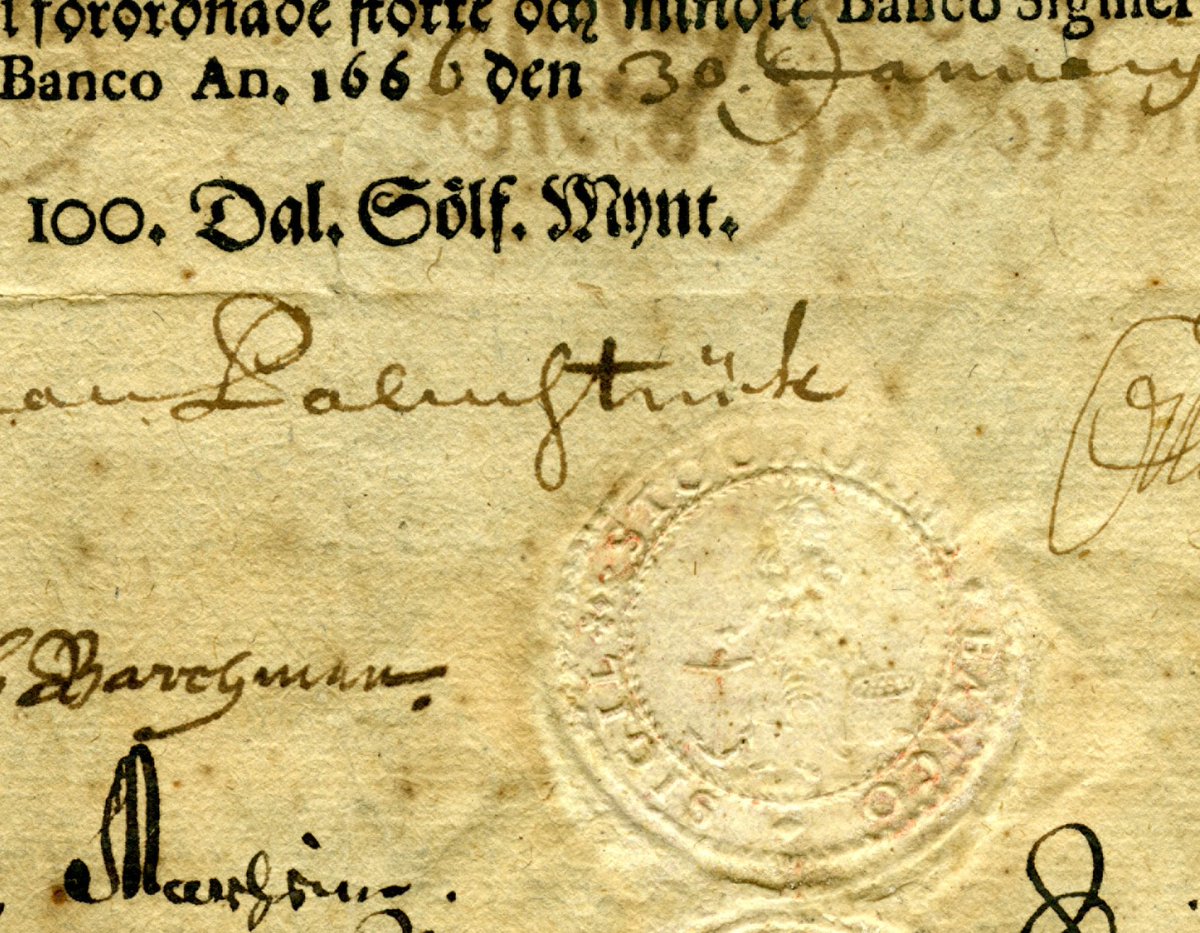 förordnade större och mindre Banco Sigillet
Banco An. 1666 den 30. January
100. Dal. Sölf. Mynt.
Palmstrük
Barchman
SIGILL
BANCO